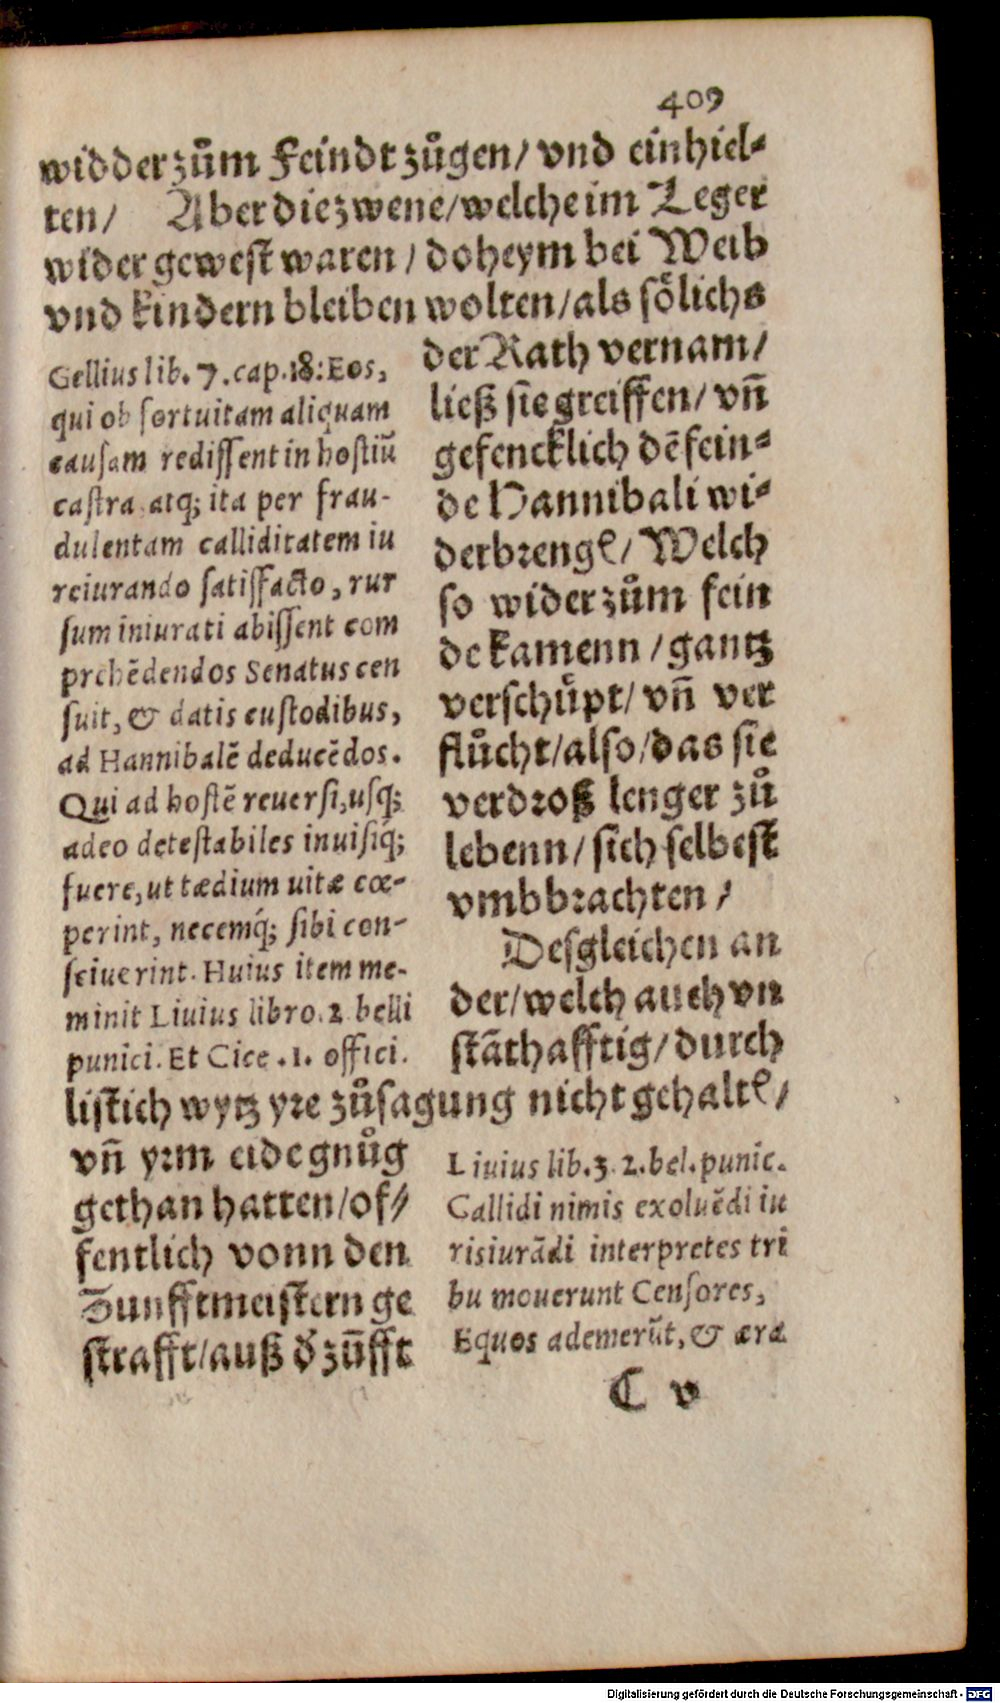 409
widder zům Feindt zůgen/ vnd einhiel-
ten/ Aber die zwene/welche im Leger
wider gewest waren/ doheym bei Weib
vnd kindern bleiben wolten/als sölichs
der Rath vernam/
ließ sie greiffen/ vñ
gefencklich dē fein-
de Hannibali wi-
derbrengē/ Welch
so wider zům fein
de kamenn/gantz
verschüpt/ vñ ver
flůcht/also/das sie
verdroß lenger zů
lebenn/sich selbest
vmbbrachten/
Desgleichen an
der/welch auch vn
stãthafftig/durch
Gellius lib. 7. cap. 18: Eos,
qui ob fortuitam aliquam
causam redissent in hostiũ
castra atq; ita per frau-
dulentam calliditatem iu
reiurando satisfacto, rur
sum iniurati abissent com
prehēdendos Senatus cen
suit, & datis custodibus,
ad Hannibalē deducēdos.
Qui ad hostē reuersi, usq;
adeo detestabiles inuisiq́;
fuere, ut tædium uitæ cœ-
perint, necemq́; sibi con-
sciuerint. Huius item me-
minit Liuius libro. 2 belli
punici. Et Cice. 1. offici.
listich wytz yre zůsagung nicht gehaltē/
vñ yrm eide gnůg
gethan hatten/of-
fentlich vonn den
Zunfftmeistern ge
strafft/auß d̕ zũfft
Liuius lib. 3. 2. bel. punic.
Callidi nimis exoluēdi iu
risiurādi interpretes tri
bu mouerunt Censores,
Equos ademerũt, & æra
C v
Digitalisierung gefördert durch die Deutsche Forschungsgemeinschaft - DFG